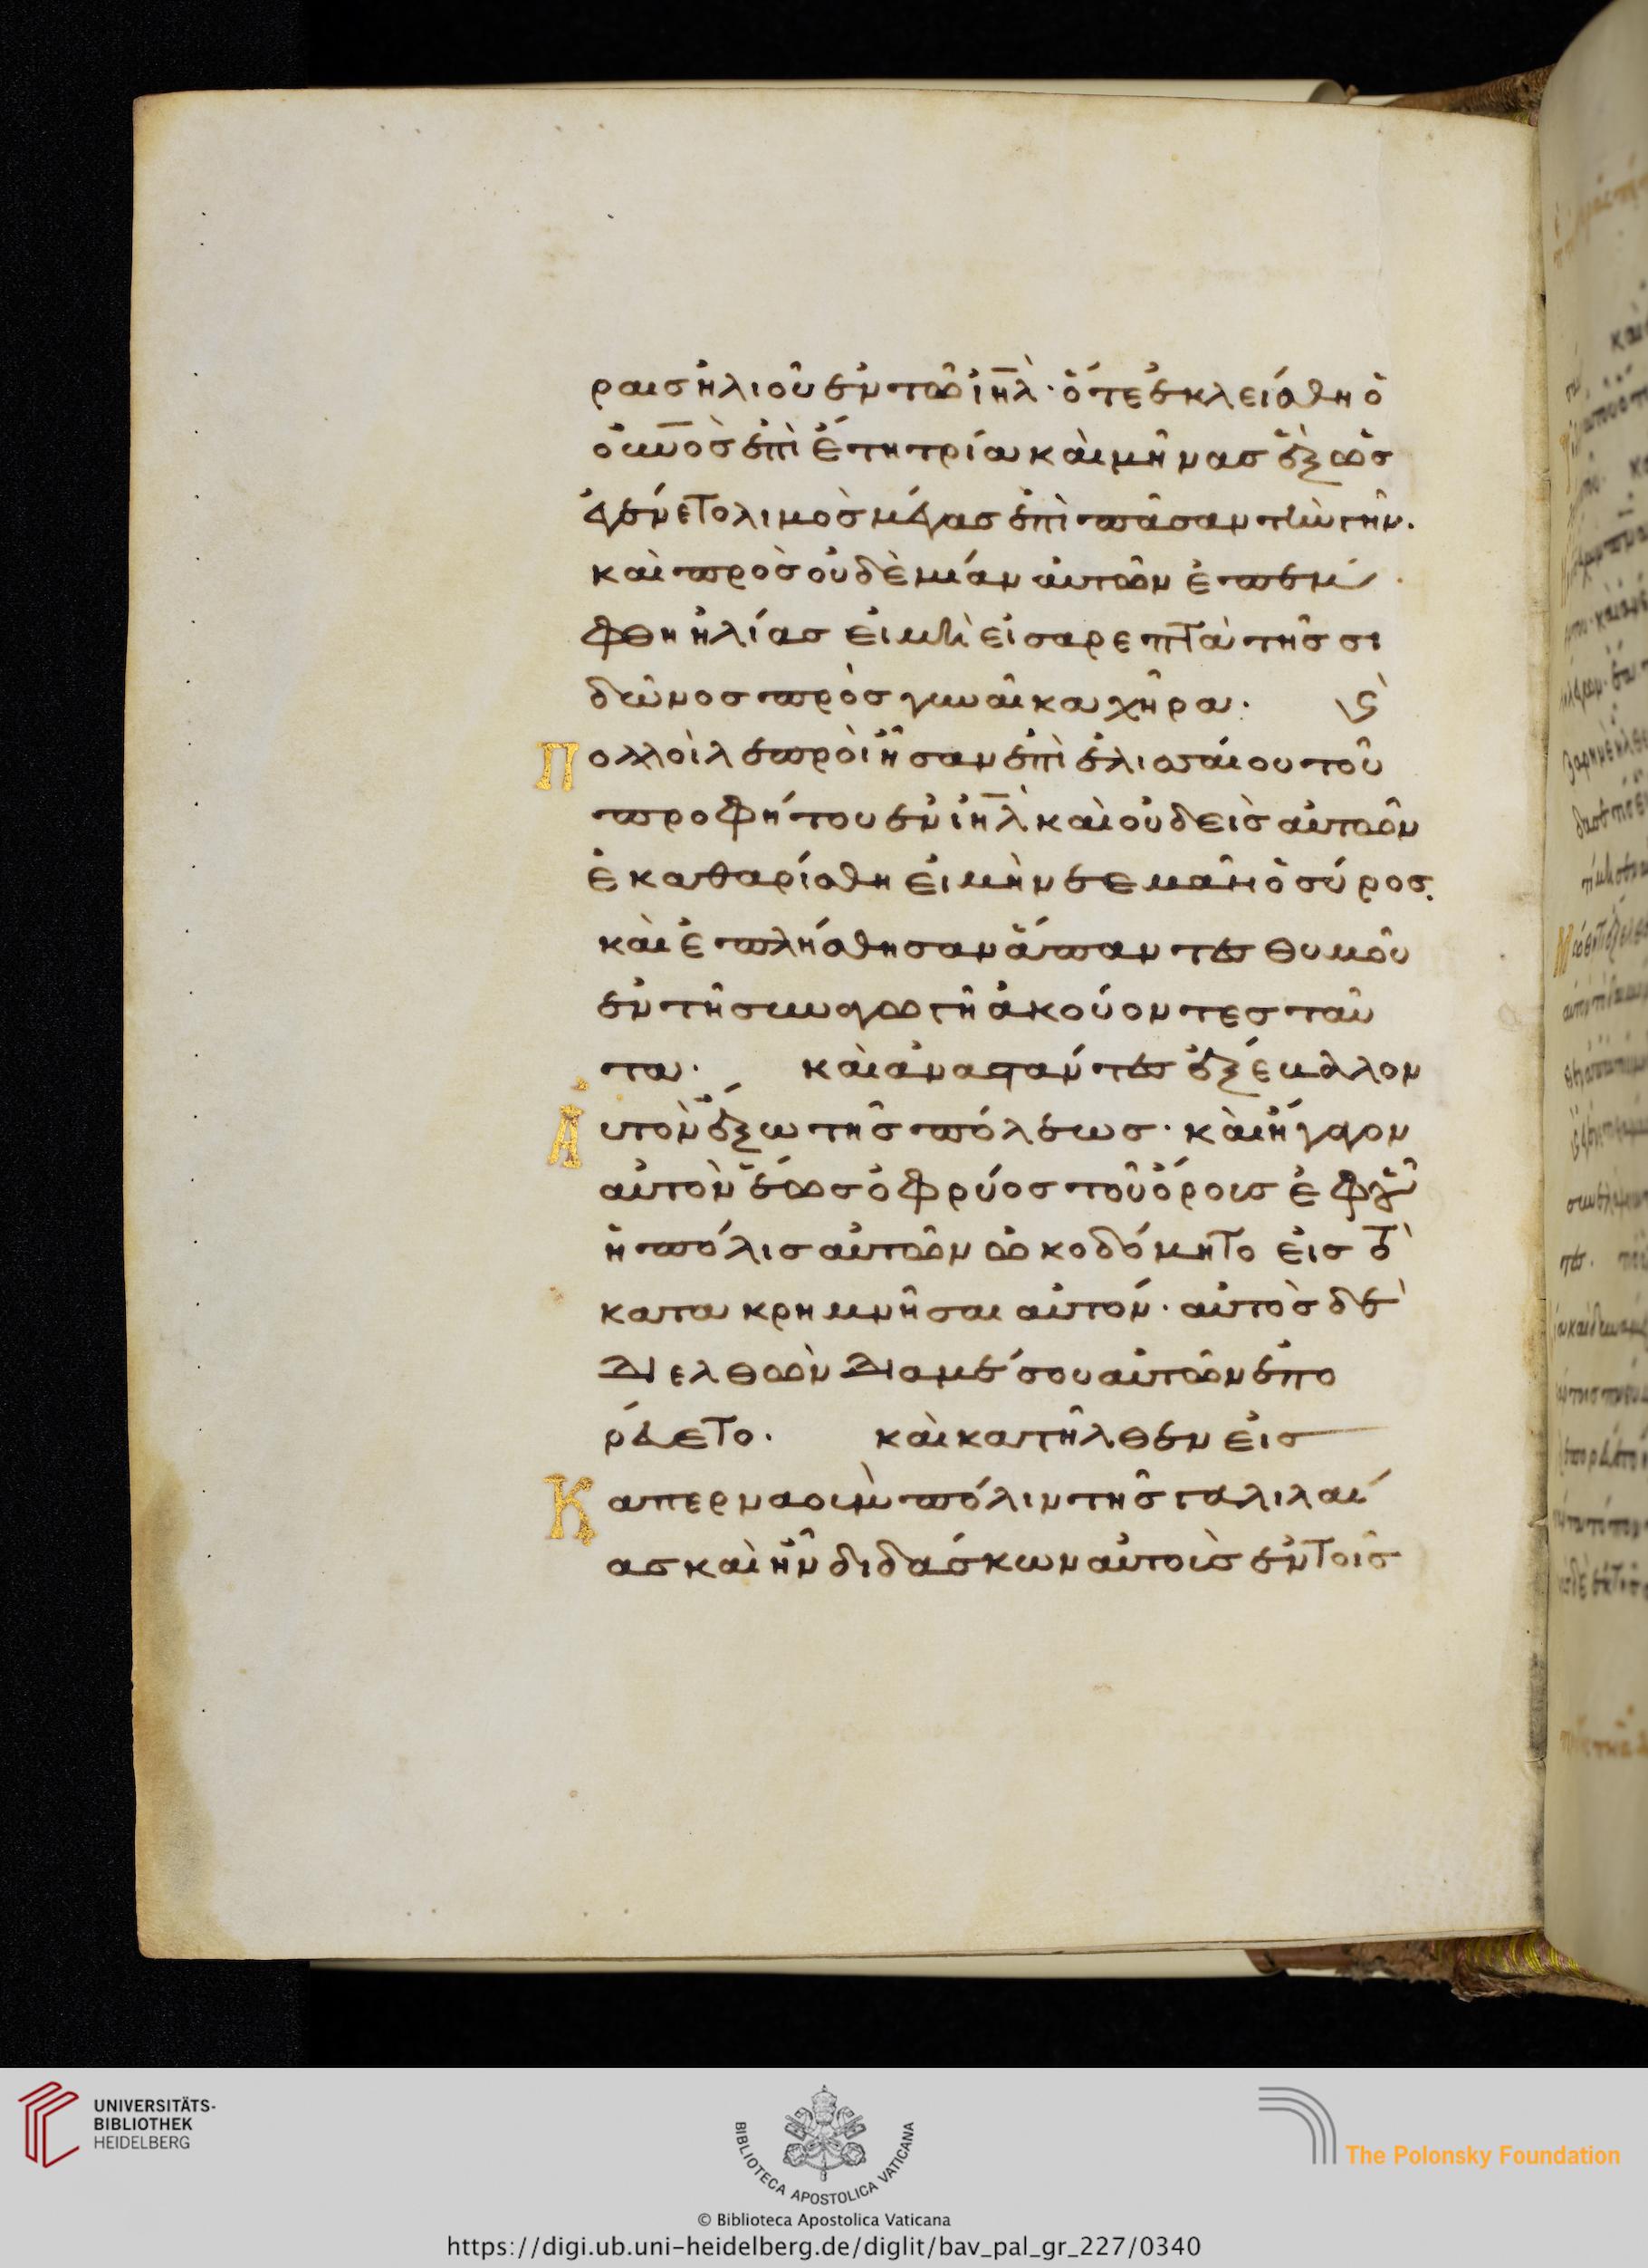 ραις ἡλιοῦ ἐν τῶ ἰη̅λ· ὅτε ἐκλείσθη ὁ
οὐ̅νος ἐπὶ ἔτη τρία καὶ μῆνας ἓξ ὡς
ἐγένετο λιμὸς μέγας ἐπὶ πᾶσαν τὴν γῆν.
καὶ πρὸς οὐδὲ μίαν αὐτῶν ἐπέμ
φθη ἠλίας εἰ μὴ εἰ σαρεπτὰ τῆς σι
δῶνος πρὸς γυναῖκα χῆρα· Ϛ
Πολλοὶ λεπροὶ ἦσαν ἐπὶ ἐλισσαίου τοῦ
προφήτου ἐν ἰη̅λ καὶ οὐδεὶς αὐτῶν
ἐκαθαρίσθη εἰ μὴ νεεμὰν ὁ σύρος.
καὶ ἐπλήσθησαν ἅπαντες θυμοῦ
ἐν τῆ συναγωγῆ ἀκούοντες ταῦ
τα· καὶ ἀναστάντες ἐξέβαλλον
Αὐτὸν ἔξω τῆς πόλεως· καὶ ἤγαγον
αὐτὸν ἕως ὀφρύος τοῦ ὄρους ἐφ οὗ
ἡ πόλις αὐτῶν ὠκοδόμητο εἰς τὸ
κατακρημνῆσαι αὐτόν· αὐτὸς δὲ
διελθὼν διαμέσου αὐτῶν ἐπο
ρεύετο· καὶ κατῆλθεν εἰς
Καπερναοὺμ πόλιν τῆς γαλιλαί
ας καὶ ἦν διδάσκων αὐτοὺς ἐν τοῖς
UNIVERSITÄTS-
BIBLIOTHEK
HEIDELBERG
BIBLIOTECA APOSTOLICA VATICANA
The Polonsky Foundation
© Biblioteca Apostolica Vaticana
https://digi.ub.uni-heidelberg.de/diglit/bav_pal_gr_227/0340